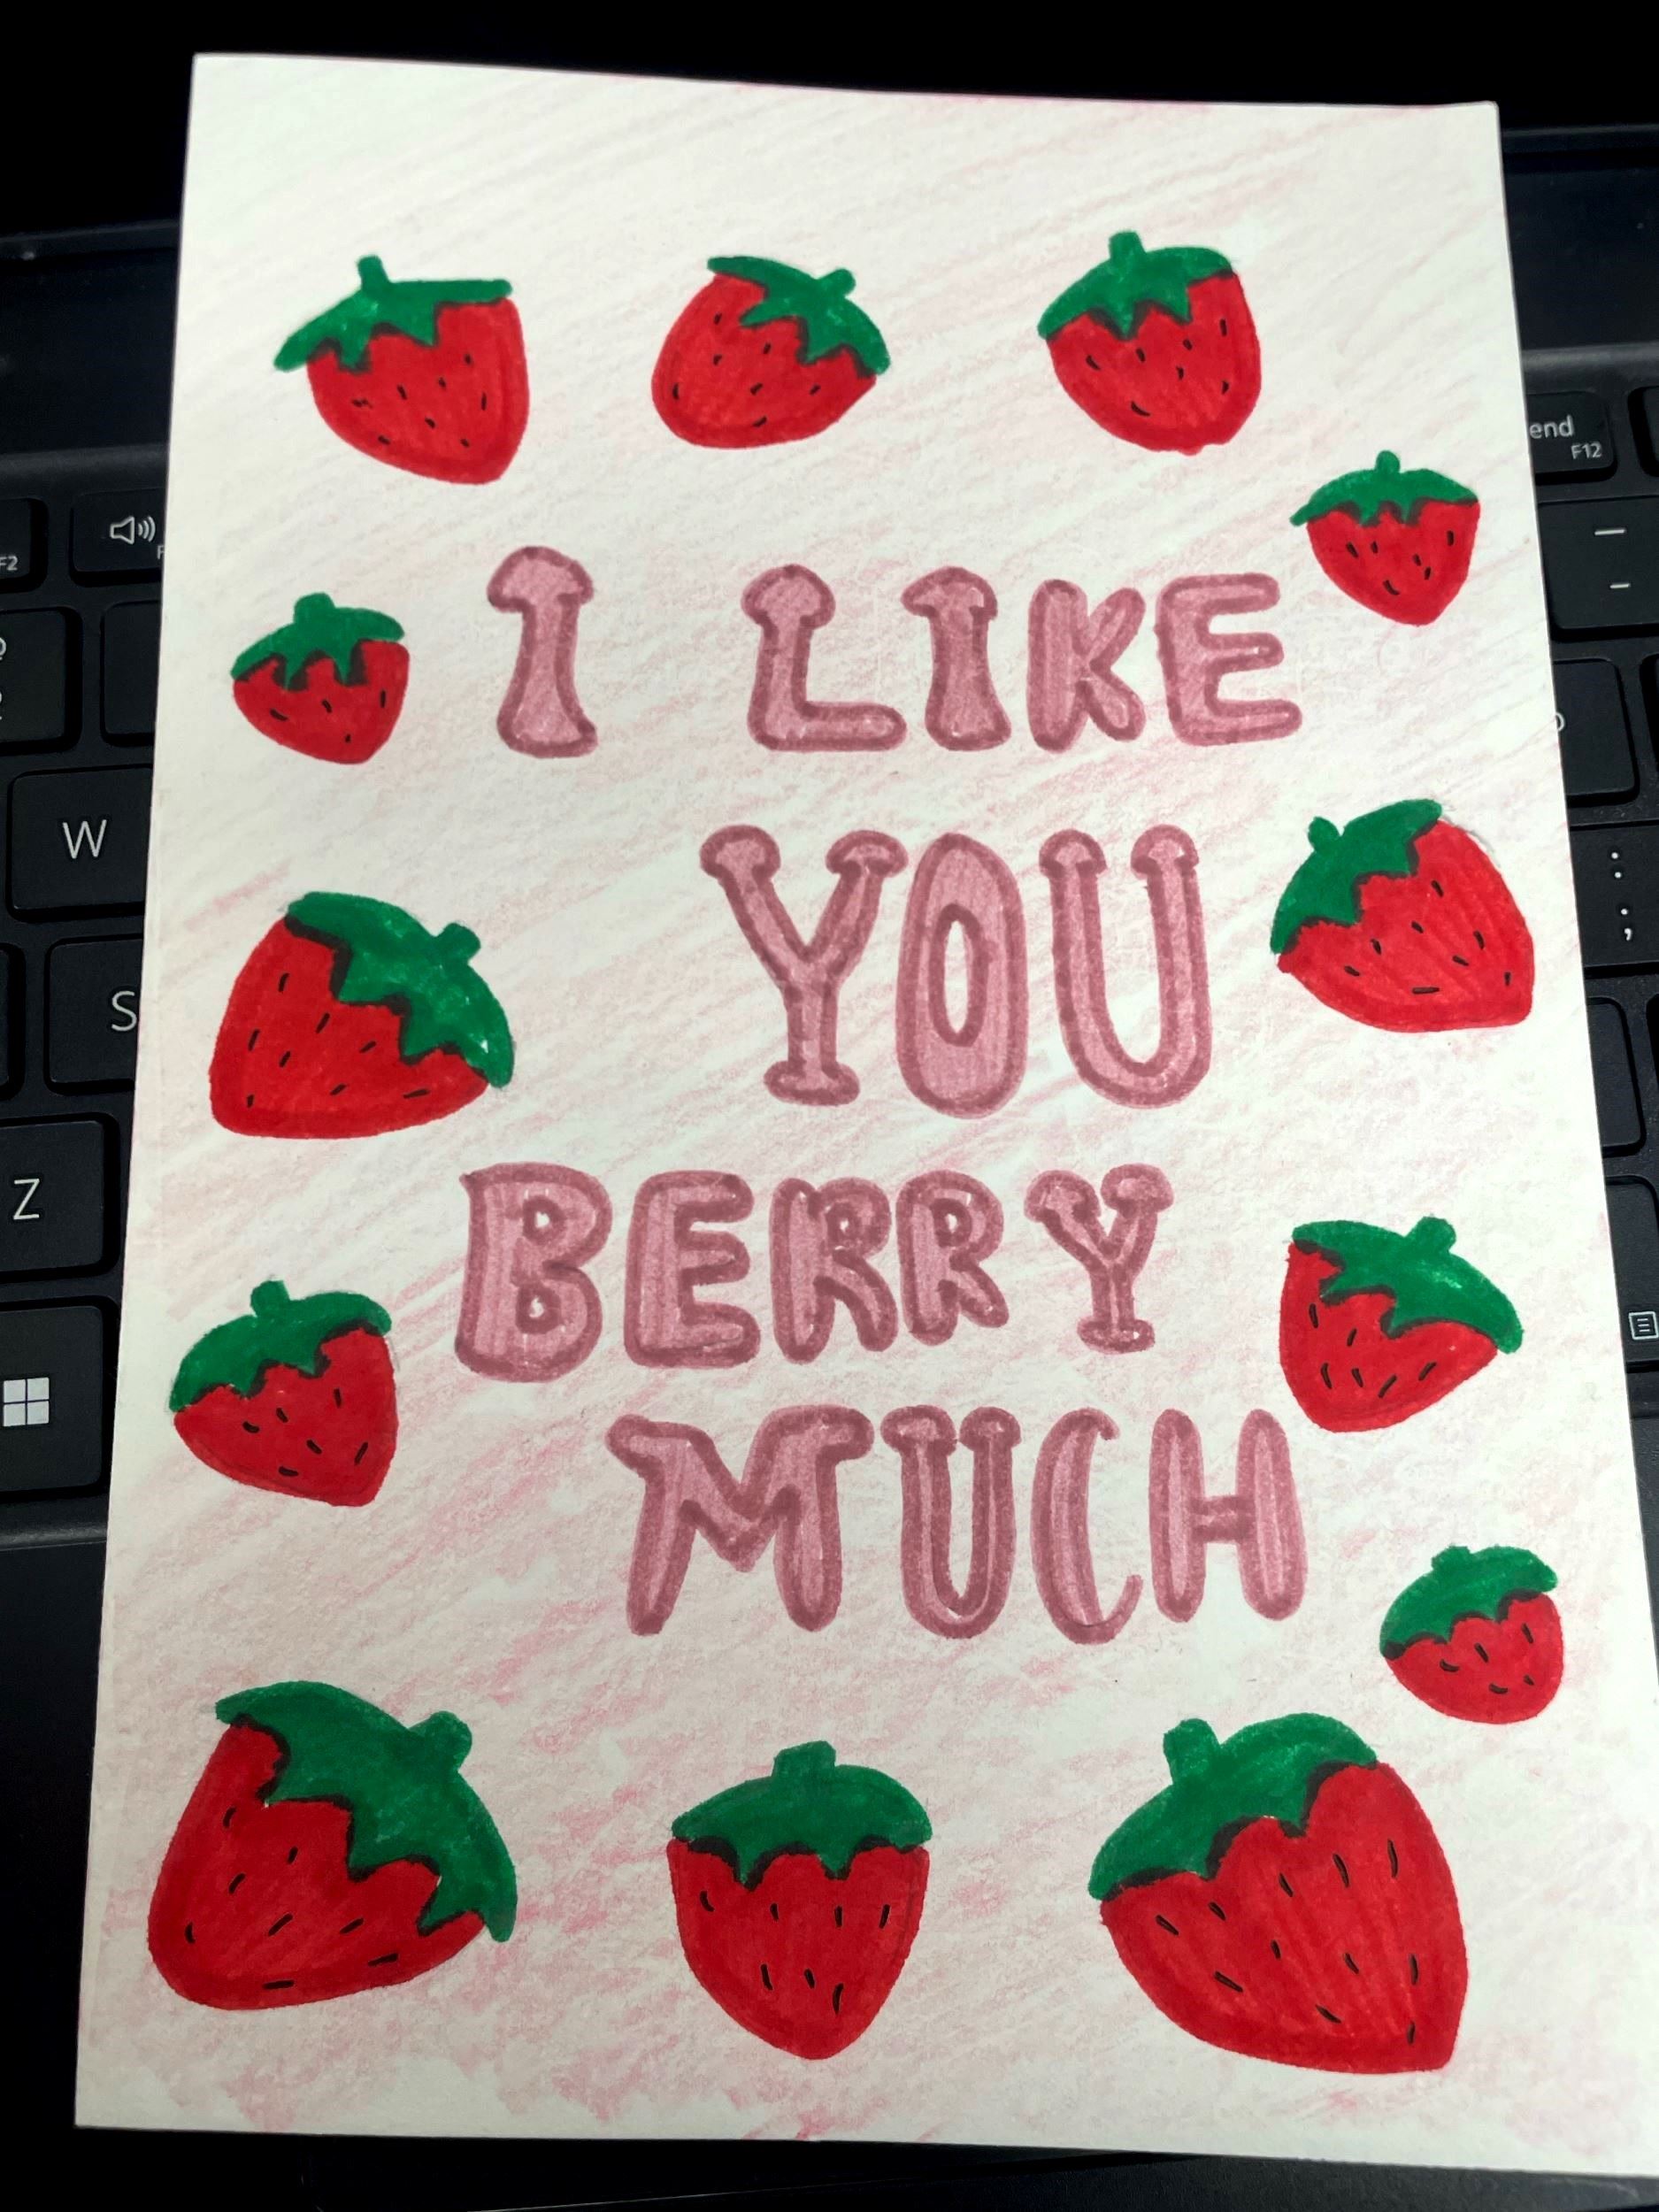 I LIKE
YOU
BERRY
MUCH
end
F12
F2
W
S
Z